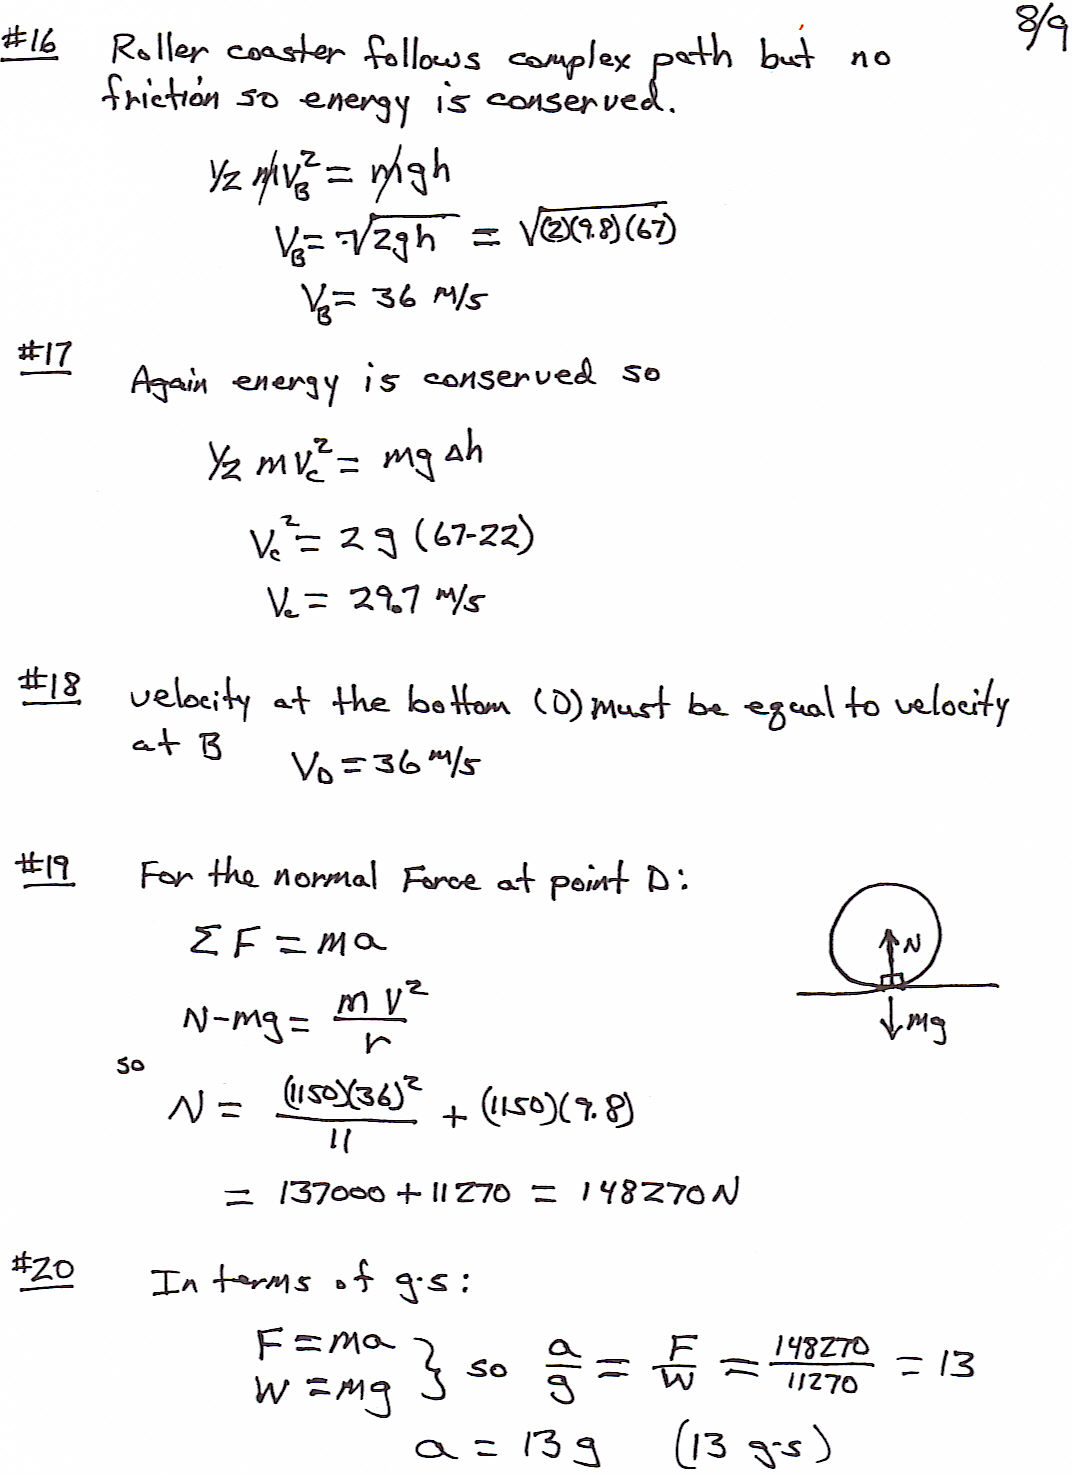 8/9
#16 Roller coaster follows complex path but no
friction so energy is conserved.
1/2 mV_B^2 = mgh
V_B = √2gh = √(2)(9.8)(67)
V_B = 36 m/s
#17
Again energy is conserved so
1/2 mV_c^2 = mg Δh
V_c^2 = 2g (67-22)
V_c = 29.7 m/s
#18 velocity at the bottom (D) must be equal to velocity
at B V_D = 36 m/s
#19 For the normal Force at point D:
ΣF = ma
N
N-mg = mV^2/r
mg
so
N = (1150)(36)^2/11 + (1150)(9.8)
= 137000 + 11270 = 148270 N
#20 In terms of g's:
F = ma
W = mg } so a/g = F/W = 148270/11270 = 13
a = 13g (13 g's)